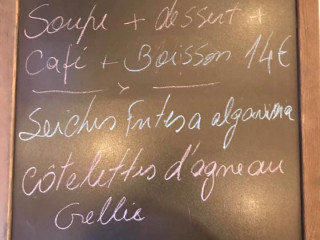 Soupe + dessert +
Café + Boisson 14€
Seiches Frites a algarina
Côtelettes d'agneau
Grellie